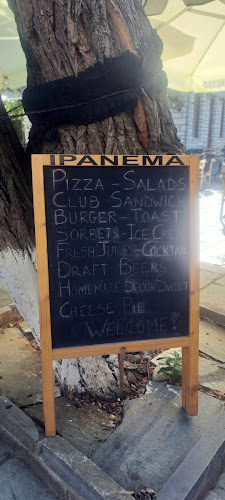 IPANEMA
PIZZA - SALADS
CLUB SANDWICH
BURGER - TOAST
SORBETS - ICE CRE
FRESH JUICES - COCKTAIL
DRAFT BEERS
HOMEMADE SPOON SWEET
CHEESE PIE
WELCOME!